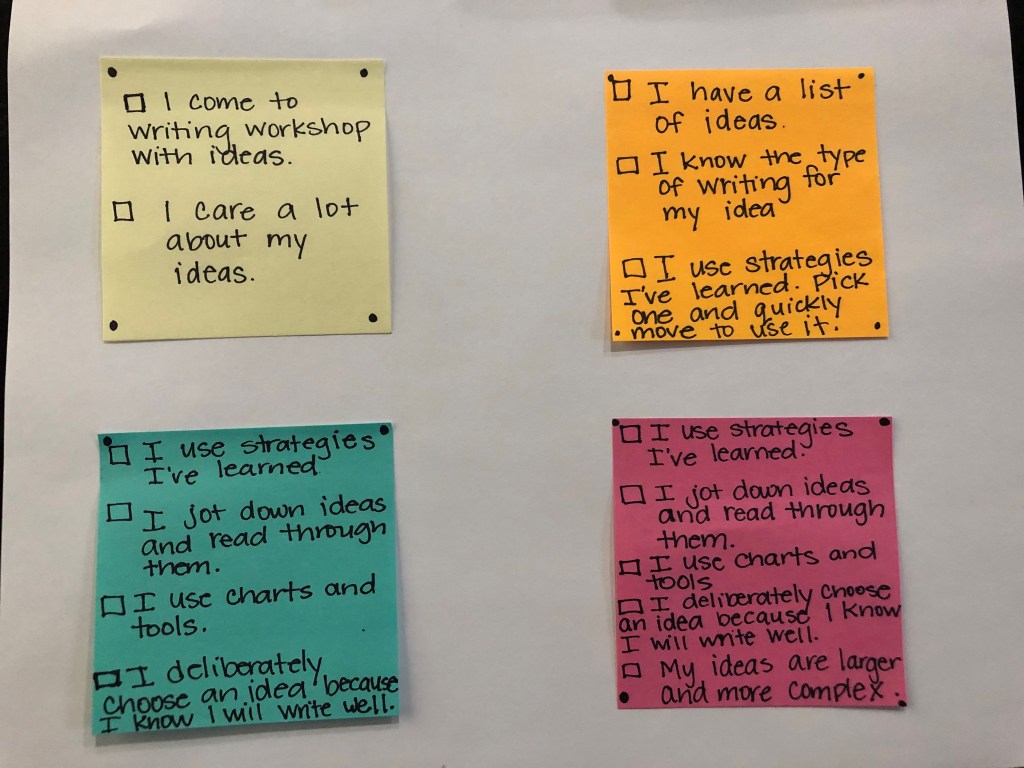 ☐ I come to
writing workshop
with ideas.
☐ I care a lot
about my
ideas.
☐ I have a list
of ideas.
☐ I know the type
of writing for
my idea
☐ I use strategies
I've learned. Pick
one and quickly
move to use it.
☐ I use strategies
I've learned
☐ I jot down ideas
and read through
them.
☐ I use charts and
tools.
☐ I deliberately
choose an idea because
I know I will write well.
☐ I use strategies
I've learned.
☐ I jot down ideas
and read through
them.
☐ I use charts and
tools
☐ I deliberately choose
an idea because I know
I will write well.
☐ My ideas are larger
and more complex.